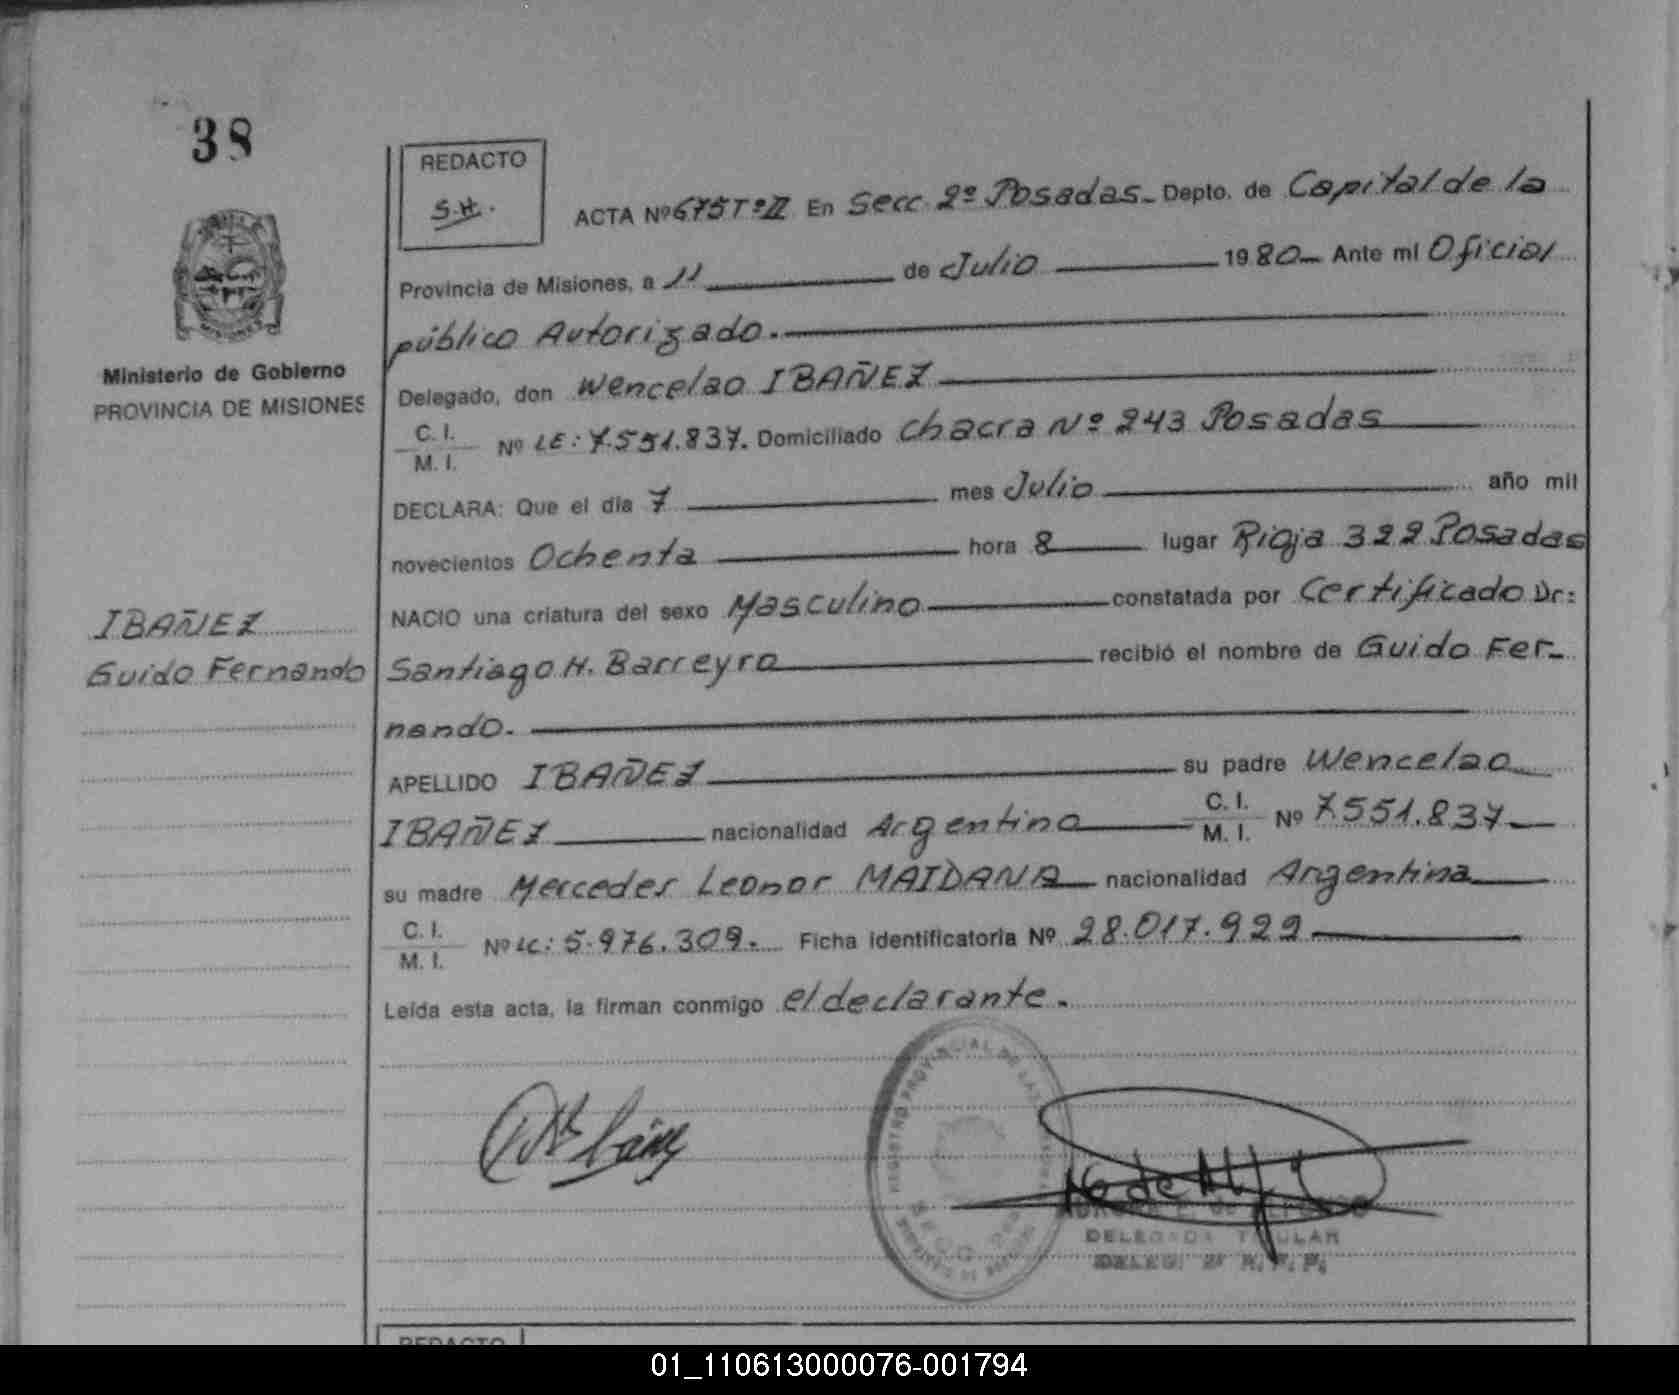 38
REDACTO
S.H.
ACTA Nº 675 Tº II En Secc. 2º Posadas. Depto. de Capital de la
Provincia de Misiones, a 11 de Julio 1980 Ante mi Oficial
público Autorizado.
Ministerio de Gobierno
PROVINCIA DE MISIONES
Delegado, don Wencelao IBAÑEZ
C. I.
M. I. Nº LE: 7.551.837. Domiciliado Chacra Nº 243 Posadas
DECLARA: Que el día 7 mes Julio año mil
novecientos Ochenta hora 8 lugar Rioja 322 Posadas
NACIO una criatura del sexo Masculino constatada por Certificado Dr:
IBAÑEZ
Guido Fernando
Santiago H. Barreyro recibió el nombre de Guido Fer-
nando.
APELLIDO IBAÑEZ su padre Wencelao
IBAÑEZ nacionalidad Argentino C. I. M. I. Nº 7.551.837
su madre Mercedes Leonor MAIDANA nacionalidad Argentina
C. I.
M. I. Nº LC: 5.976.309. Ficha identificatoria Nº 28.017.929
Leída esta acta, la firman conmigo el declarante.
REGISTRO PROVINCIAL DE LAS
DELEGADA TITULAR
DELEG. 2ª R. P. P.
REDACTO
01_110613000076-001794